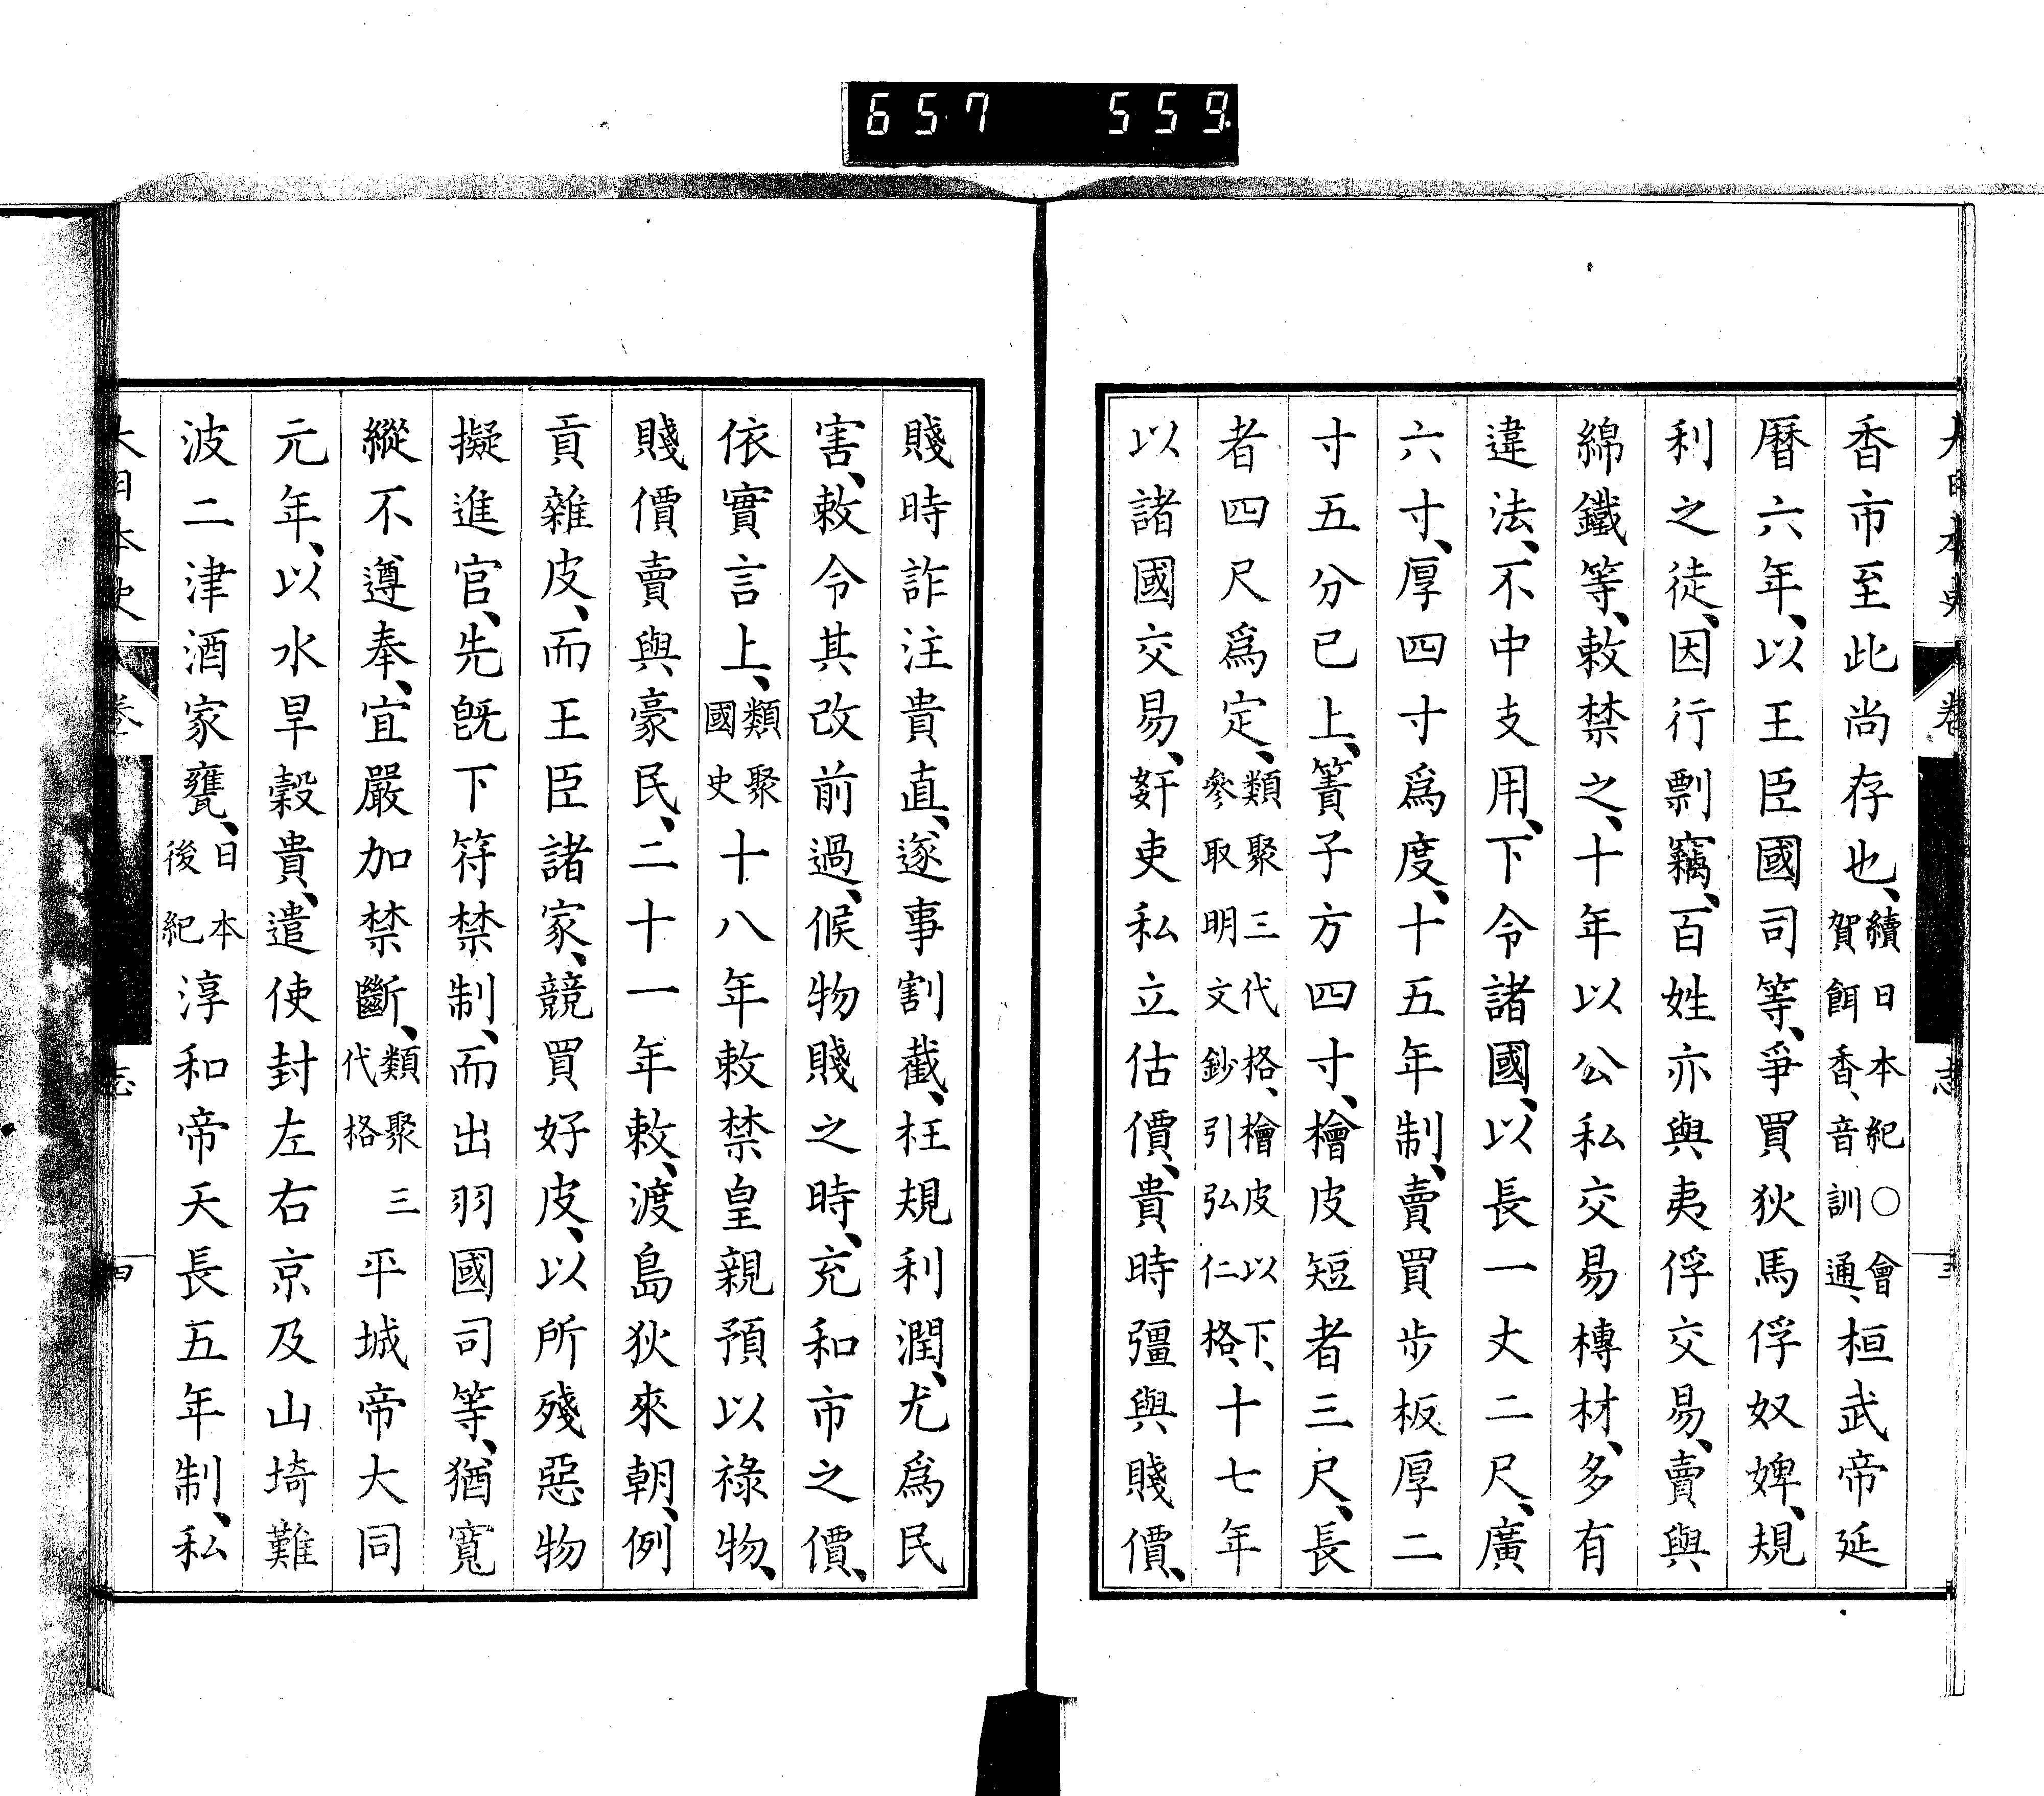 657 559
香市至此尚存也、續日本紀○會賀餌香、音訓通、桓武帝延
曆六年、以王臣國司等、爭買狄馬俘奴婢、規
利之徒、因行剽竊、百姓亦與夷俘交易、賣與
綿鐵等、敕禁之、十年以公私交易榑材、多有
違法、不中支用、下令諸國、以長一丈二尺、廣
六寸、厚四寸爲度、十五年制、賣買步板厚二
寸五分已上、簀子方四寸、檜皮短者三尺、長
者四尺爲定、類聚三代格、檜皮以下、參取明文鈔引弘仁格、十七年
以諸國交易、姧吏私立估價、貴時彊與賤價、
賤時詐注貴直、遂事割截、枉規利潤、尤爲民
害、敕令其改前過、候物賤之時、充和市之價、
依實言上、類聚國史十八年敕禁皇親預以祿物、
賤價賣與豪民、二十一年敕、渡島狄來朝、例
貢雜皮、而王臣諸家、競買好皮、以所殘惡物
擬進官、先旣下符禁制、而出羽國司等、猶寬
縱不遵奉、宜嚴加禁斷、類聚三代格平城帝大同
元年、以水旱穀貴、遣使封左右京及山埼難
波二津酒家甕、日本後紀淳和帝天長五年制、私
大日本史 卷 志